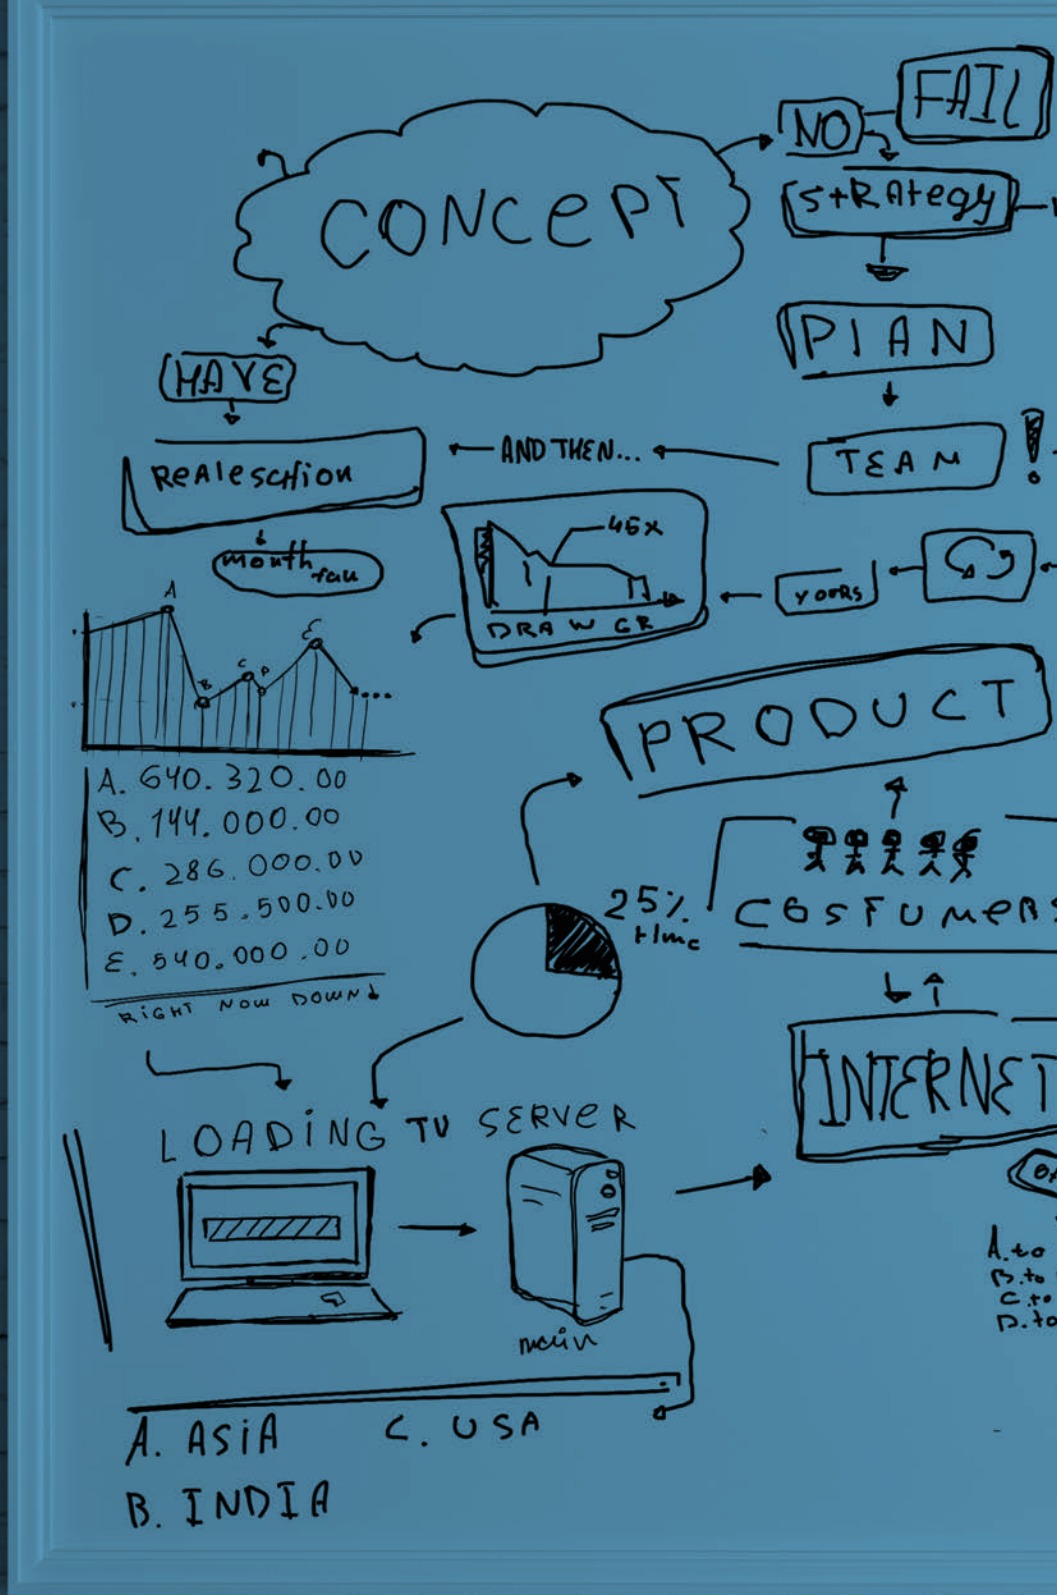 CONCEPT
NO
FAIL
StRAtegy
HAVE
PlAN
ReAleschion
AND THEN...
TEAM
!
month
45x
yoors
DRAW GR
A
B
C
D
E
...
PRODUCT
A. 640.320.00
B. 144.000.00
C. 286.000.00
D. 255.500.00
E. 540.000.00
RiGHT NOW DOWN
25%
time
COSTUMeRS
INTERNET
LOADiNG TO SERVeR
main
A. to
B. to
C. to
D. to
A. ASiA
C. USA
B. INDIA